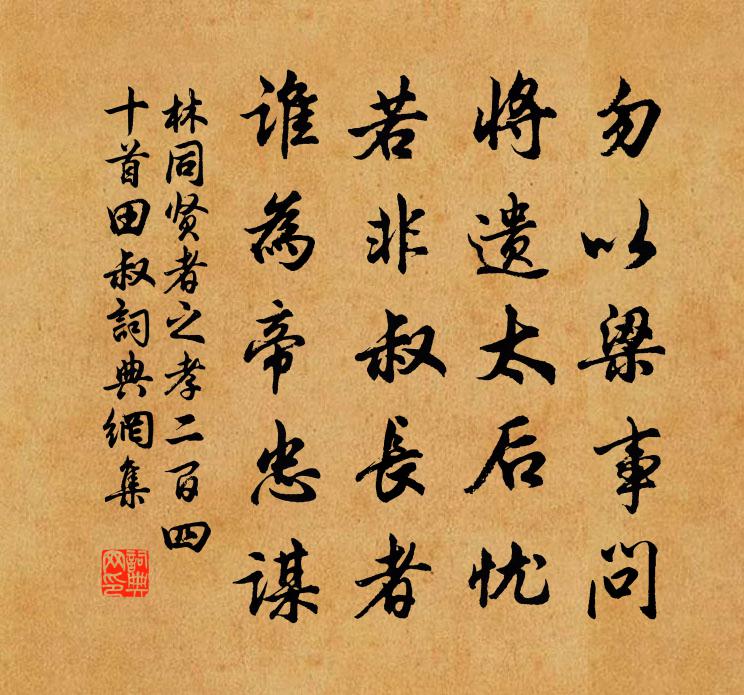 勿以梁事问
将遗太后忧
若非叔長者
谁為帝忠谋
林同贤者之孝二百四
十首田叔詞典網集
詞典
网印